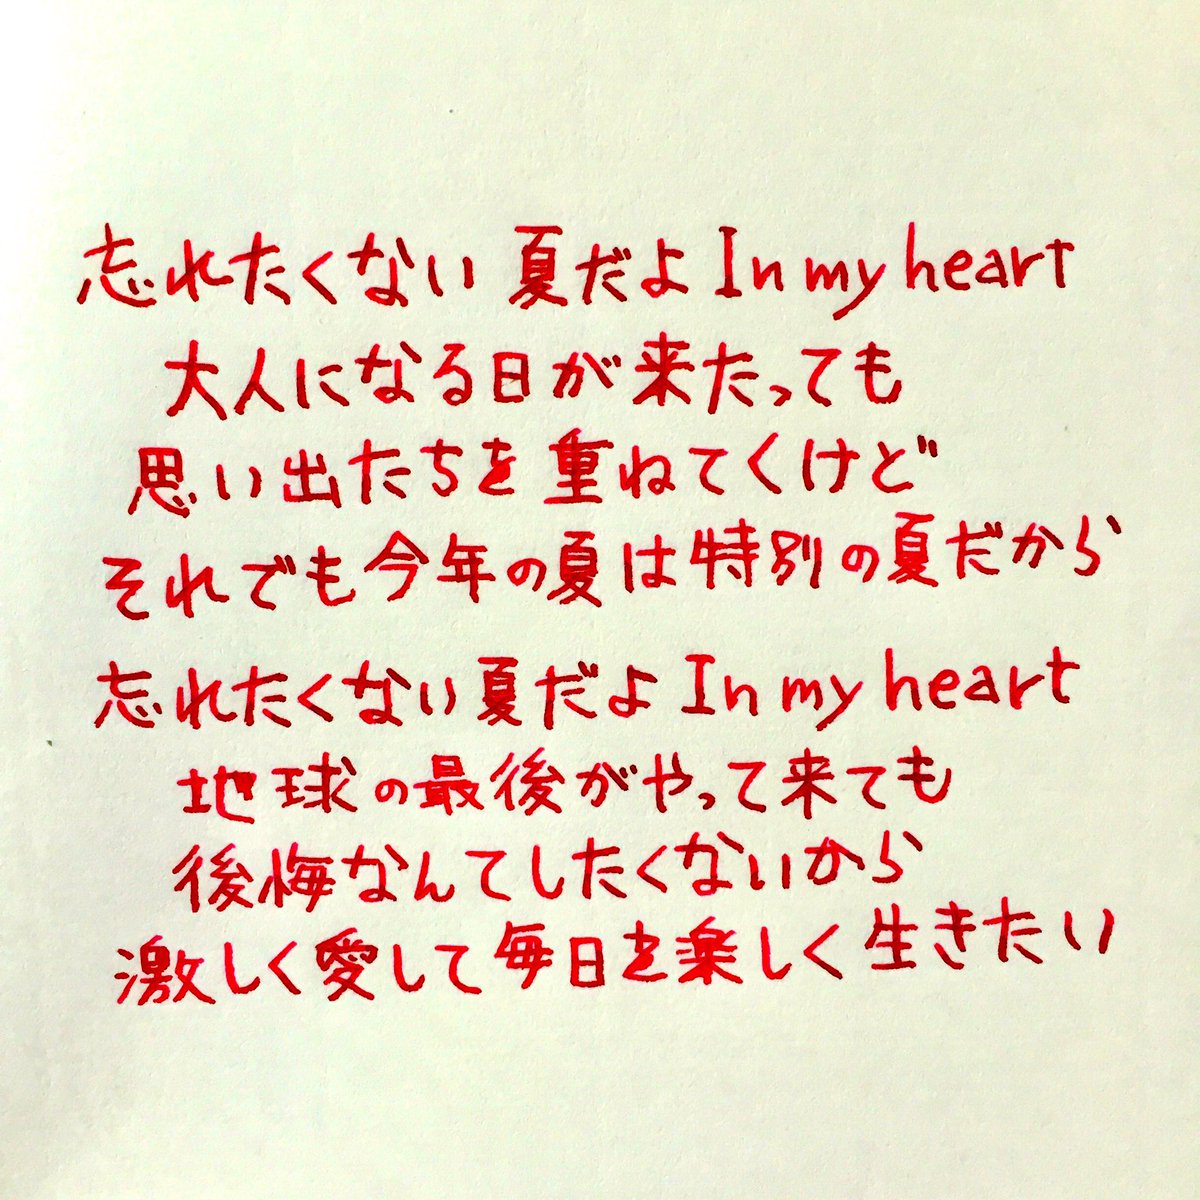 忘れたくない 夏だよ In my heart
大人になる日が来たっても
思い出たちを重ねてくけど
それでも今年の夏は特別の夏だから
忘れたくない夏だよ In my heart
地球の最後がやって来ても
後悔なんてしたくないから
激しく愛して毎日を楽しく生きたい